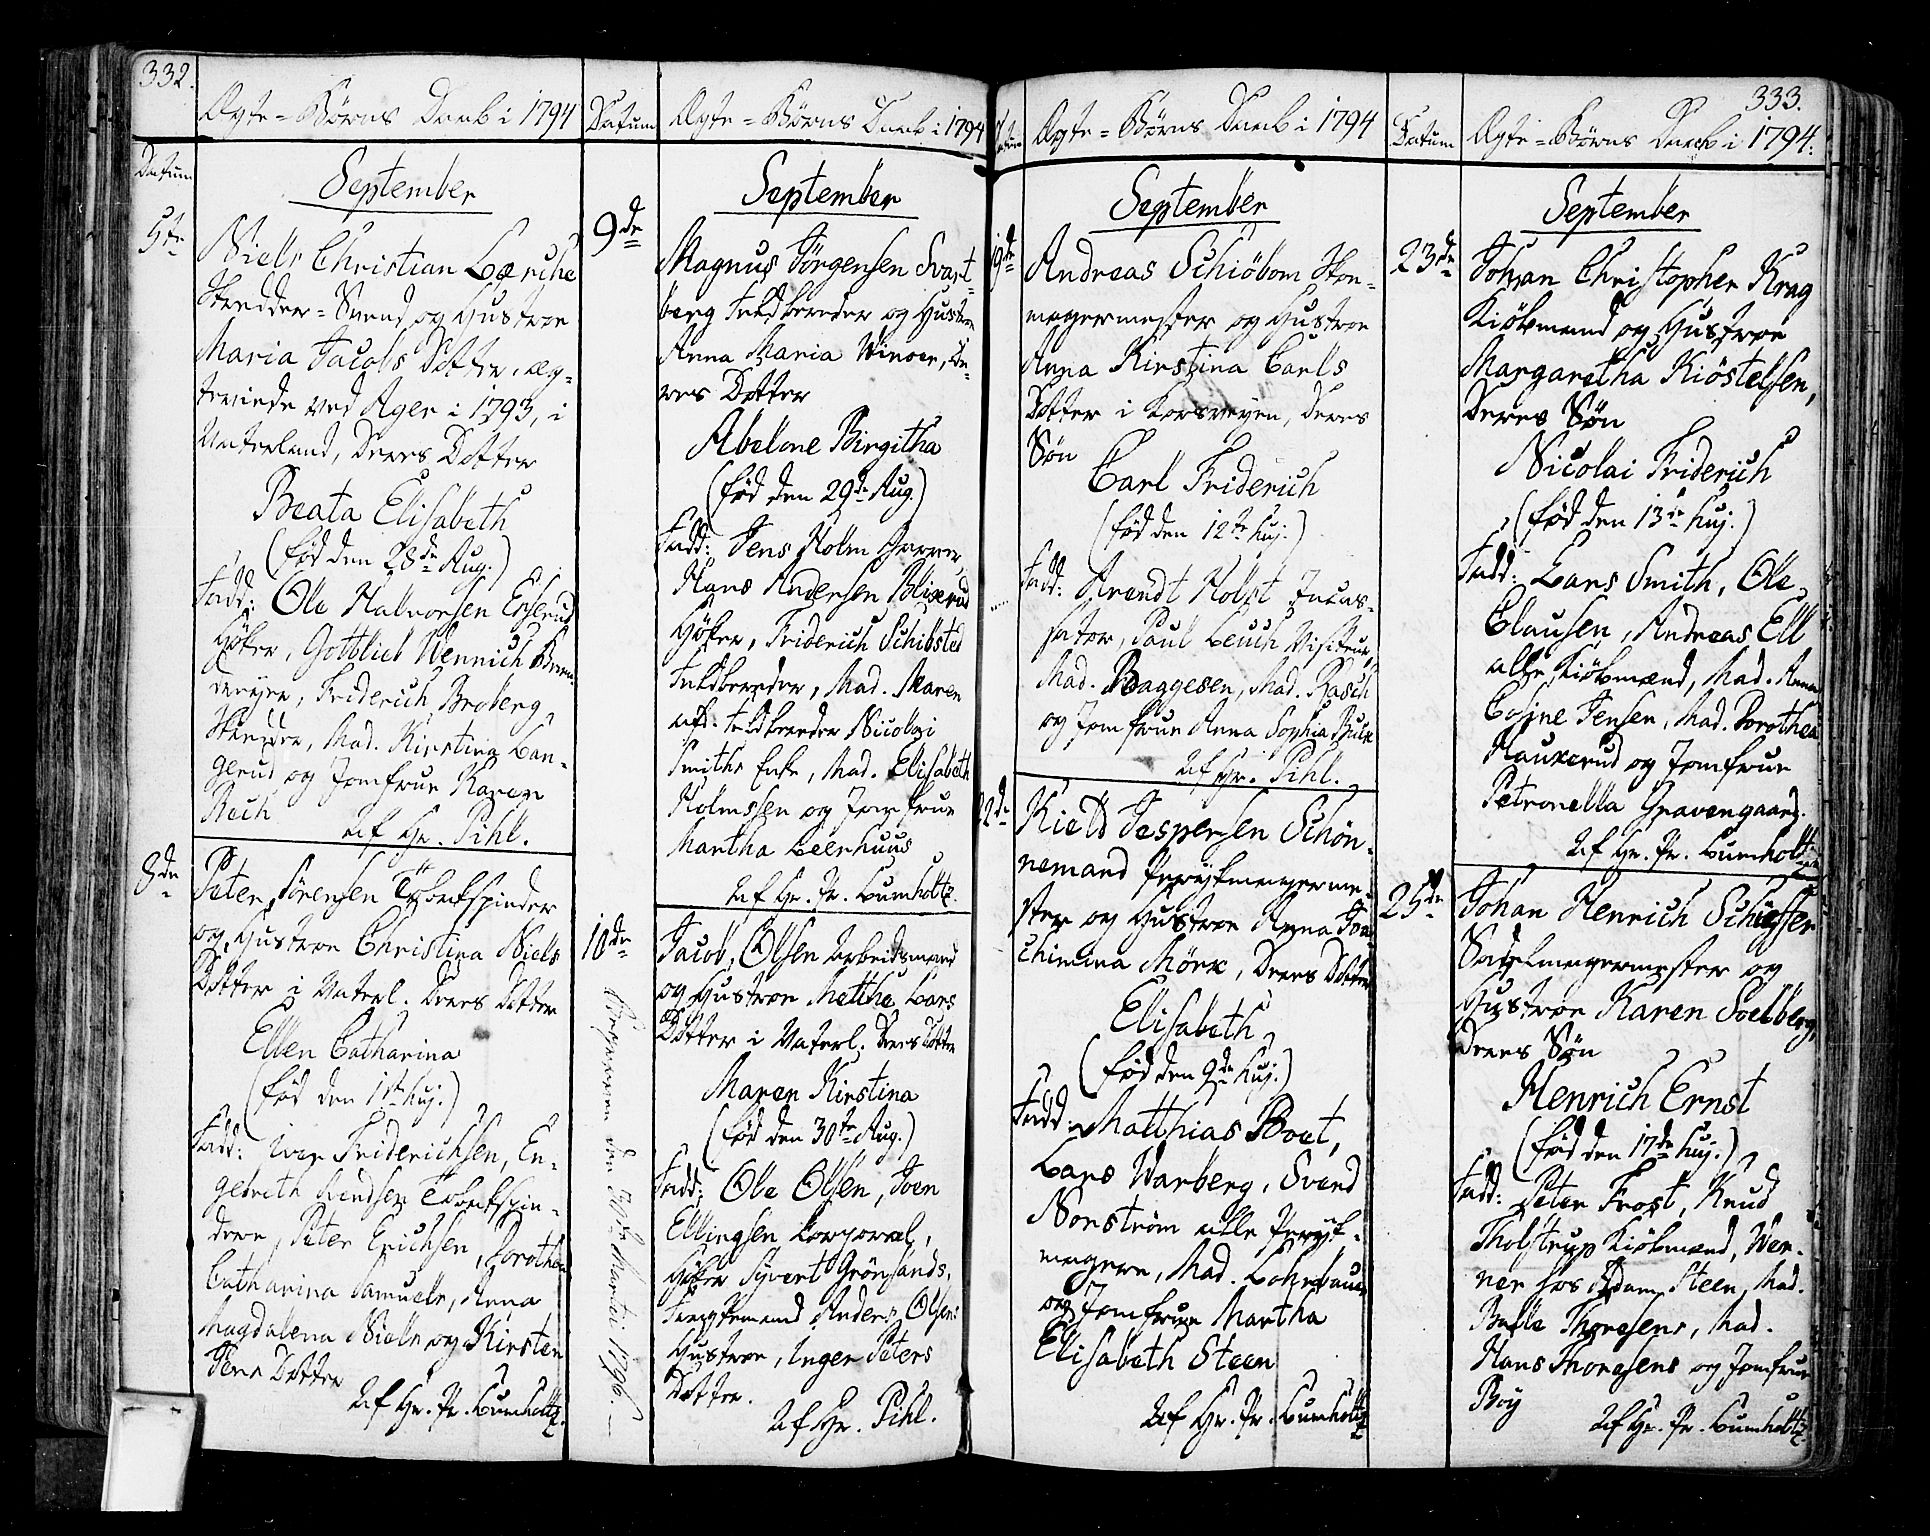 332.
Ægte-Børns Daab i 1794
Datum
September
5te
Niels Christian Lærche
Skrædder-Svend og Hustroe
Maria Jacobs Dotter, æg-
teviede ved Ager i 1793, i
Vaterland, Deres Dotter
Beata Elisabeth
(fød den 28de Aug.)
Fadd: Ole Halvorsen
Høker, Gottlieb Wennich
Friderich Broberg
Mad. Kirstina Lan-
gerud og Jomfrue Karen
Rech
Af Hr. Pihl.
8de
Peter Sørensen Tobakspinder
og Hustroe Christina Niels
Dotter i Vaterl. Deres Dotter
Ellen Catharina
(fød den 1ste huj.)
Fadd: Iver Friderichsen, En-
gebreth Svendsen Tobakspin-
dere, Peter Erichsen, Dorothea
Catharina Samuels, Anna
Magdalena Niels og Kirsten
Peers Dotter
Af Hr. Pr. Lumholtz.
Datum
Ægte-Børns Daab i 1794
September
9de
Magnus Jørgensen Svart-
berg Fuldbereder og Hustroe
Anna Maria Winoer, De-
res Dotter
Abelone Birgitha
(fød den 29de Aug.)
Fadd: Jens Holm
Hans Andersen Blixerud
Høker, Friderich Schibsted
Fuldbereder, Mad. Maren
afd. Fuldbereder Nicolai
Smiths Enke, Mad. Elisabeth
Holmssen og Jomfrue
Martha Leerhuus
Af Hr. Pr. Lumholtz.
10de
Jacob Olsen Arbeidsmand
og Hustroe Metthe Lars
Dotter i Vaterl. Deres Dotter
Maren Kirstina
(fød den 30te Aug.)
Fadd: Ole Olsen, Sven
Ellingsen Corporal,
Høker Syvert Grønsands,
Anders Olsens
Hustroe, Inger Peters
Dotter.
Af Hr. Pihl.
den 30de Martii 1796.
Ægte-Børns Daab i 1794
September
19de
Andreas Schiöbom Skoe-
magermester og Hustroe
Anna Kirstina Carls
Dotter i Korsveyen, Deres
Søn
Carl Friderich
(fød den 12te huj.)
Fadd: Arendt Holst Incas-
sator, Paul Leuch Visiteur,
Mad. Baggesen, Mad. Rasch
og Jomfrue Anna Sophia
Af Hr. Pihl.
22de
Kield Jespersen Schøn-
nemand Parykmagerme-
ster og Hustroe Anna Joa-
chimina Mörk, Deres Dotter
Elisabeth
(fød den 9de huj.)
Fadd: Matthias Boet,
Lars Warberg, Svend
Norström alle Paryk-
magere, Mad.
og Jomfrue Martha
Elisabeth Steen
Af Hr. Pr. Lumholtz
333.
Datum
Ægte-Børns Daab i 1794.
September
23de
Johan Christopher Krag
Kiøbmand og Hustroe
Margaretha Kiöstelsen,
Deres Søn
Nicolai Friderich
(fød den 13de huj.)
Fadd: Lars Smith, Ole
Clausen, Andreas Ell
alle Kiøbmænd, Mad. Anna
Jensen, Mad. Dorothea
Haukerud og Jomfrue
Petronella Gravengaard.
Af Hr. Pr. Lumholtz
25de
Johan Henrich Schiesser
Sadelmagermester og
Hustroe Karen Soelberg,
Deres Søn
Henrich Ernst
(fød den 17de huj.)
Fadd: Peter Frost, Knud
Tholstrup Kiøbmænd, Wer-
ner hos Adam Steen, Mad.
Balle Thoresens, Mad.
Hans Thoresens og Jomfrue
Boy
Af Hr. Pr. Lumholtz